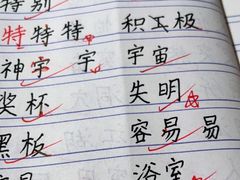 特别
特特特 积极
神宇 宇 宇宙
奖杯 失明
黑板 容易易
浴室